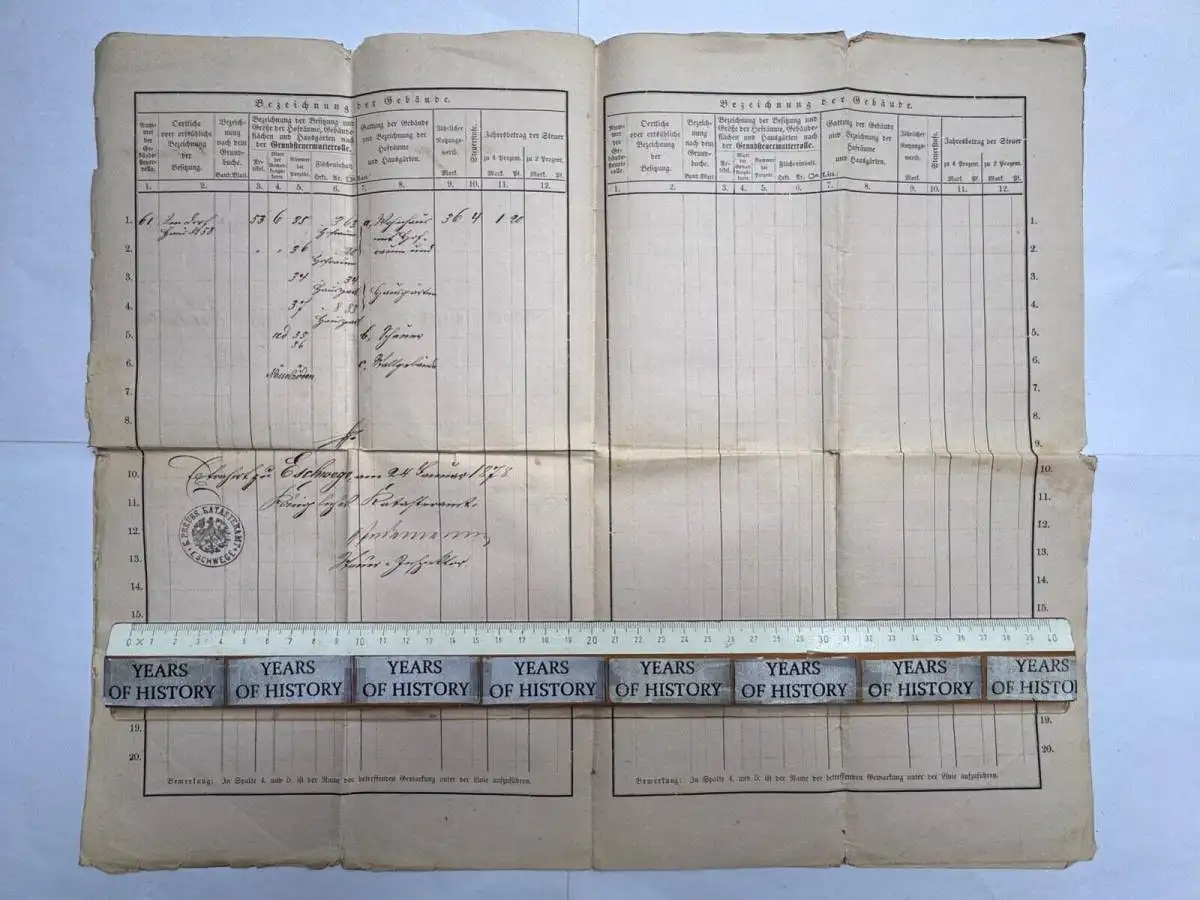 Bezeichnung der Gebäude.
Num-
mer der
Ge-
bäude-
steuer-
rolle.
Oertliche
oder ortsübliche
Bezeichnung
der
Besitzung.
Bezeich-
nung
nach dem
Grund-
buche.
Band. Blatt.
Bezeichnung der Besitzung und
Größe der Hofräume, Gebäude-
flächen und Hausgärten nach
der Grundsteuermutterrolle.
Ar-
tikel.
Nummer
der
Parzelle.
Flächeninhalt.
Hekt. Ar.
Gattung der Gebäude
und Bezeichnung der
Hofräume
und Hausgärten.
Jährlicher
Nutzungs-
werth.
Mark.
Steuerstufe.
Jahresbetrag der Steuer
zu 4 Prozent.
Mark Pf.
zu 2 Prozent.
1. 2. 3. 4. 5. 6. 7. 8. 9. 10. 11. 12.
1. 61 Im Dorf 53 6 35 a. Wohnhaus 36 4 1 20
Haus № 58 Hofraum mit Hof-
2. " " 36 raum und
Hofraum
3. 34
Hausgärten
4. 37
5. ad 35 b. Scheuer
36
6. c. Stallgebäude
7.
8.
10. zu Eschwege, am 24 Januar 1878
11. Königliches Katasteramt.
12.
13. Steuer-Inspektor
14.
15.
19.
20.
K. PREUSS. KATASTERAMT
ESCHWEGE
Bemerkung: In Spalte 4. und 5. ist der Name der betreffenden Gemarkung unter der Linie aufzuführen.
Bezeichnung der Gebäude.
Num-
mer der
Ge-
bäude-
steuer-
rolle.
Oertliche
oder ortsübliche
Bezeichnung
der
Besitzung.
Bezeich-
nung
nach dem
Grund-
buche.
Band. Blatt.
Bezeichnung der Besitzung und
Größe der Hofräume, Gebäude-
flächen und Hausgärten nach
der Grundsteuermutterrolle.
Ar-
tikel.
Nummer
der
Parzelle.
Flächeninhalt.
Hekt. Ar.
Gattung der Gebäude
und Bezeichnung der
Hofräume
und Hausgärten.
Jährlicher
Nutzungs-
werth.
Mark.
Steuerstufe.
Jahresbetrag der Steuer
zu 4 Prozent. zu 2 Prozent.
Mark Pf. Mark Pf.
1. 2. 3. 4. 5. 6. 7. 8. 9. 10. 11. 12.
1.
2.
3.
4.
5.
6.
7.
8.
9.
10.
11.
12.
13.
14.
15.
19.
20.
Bemerkung: In Spalte 4. und 5. ist der Name der betreffenden Gemarkung unter der Linie aufzuführen.
0 1 2 3 4 5 6 7 8 9 10 11 12 13 14 15 16 17 18 19 20 21 22 23 24 25 26 27 28 29 30 31 32 33 34 35 36 37 38 39 40
YEARS OF HISTORY YEARS OF HISTORY YEARS OF HISTORY YEARS OF HISTORY YEARS OF HISTORY YEARS OF HISTORY YEARS OF HISTORY YEARS OF HISTO